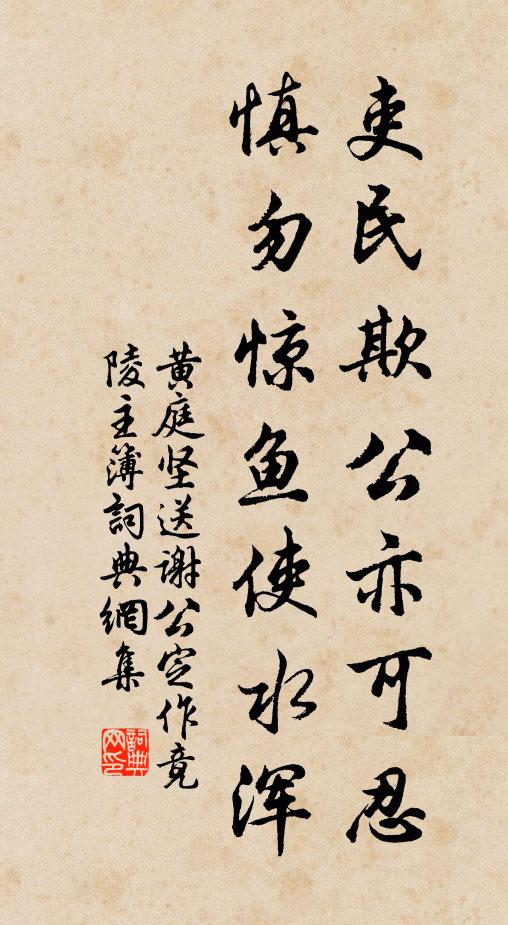 吏民欺公亦可忍
慎勿惊鱼使水浑
黄庭坚送谢公定作竟
陵主簿詞典網集
詞典網印